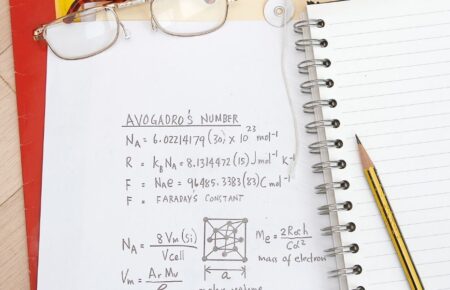 AVOGADRO'S NUMBER
N_A = 6.02214179(30) x 10^23 mol^-1
R = k_B N_A = 8.1314472(15) J mol^-1 K^-1
F = N_A e = 96485.3383(83) C mol^-1
F = FARADAY'S CONSTANT
N_A = 8 V_m (Si) / V_cell
M_e = 2 R∞ h / C α^2
mass of electron
a
V_m = A_r M_u / ρ
volume